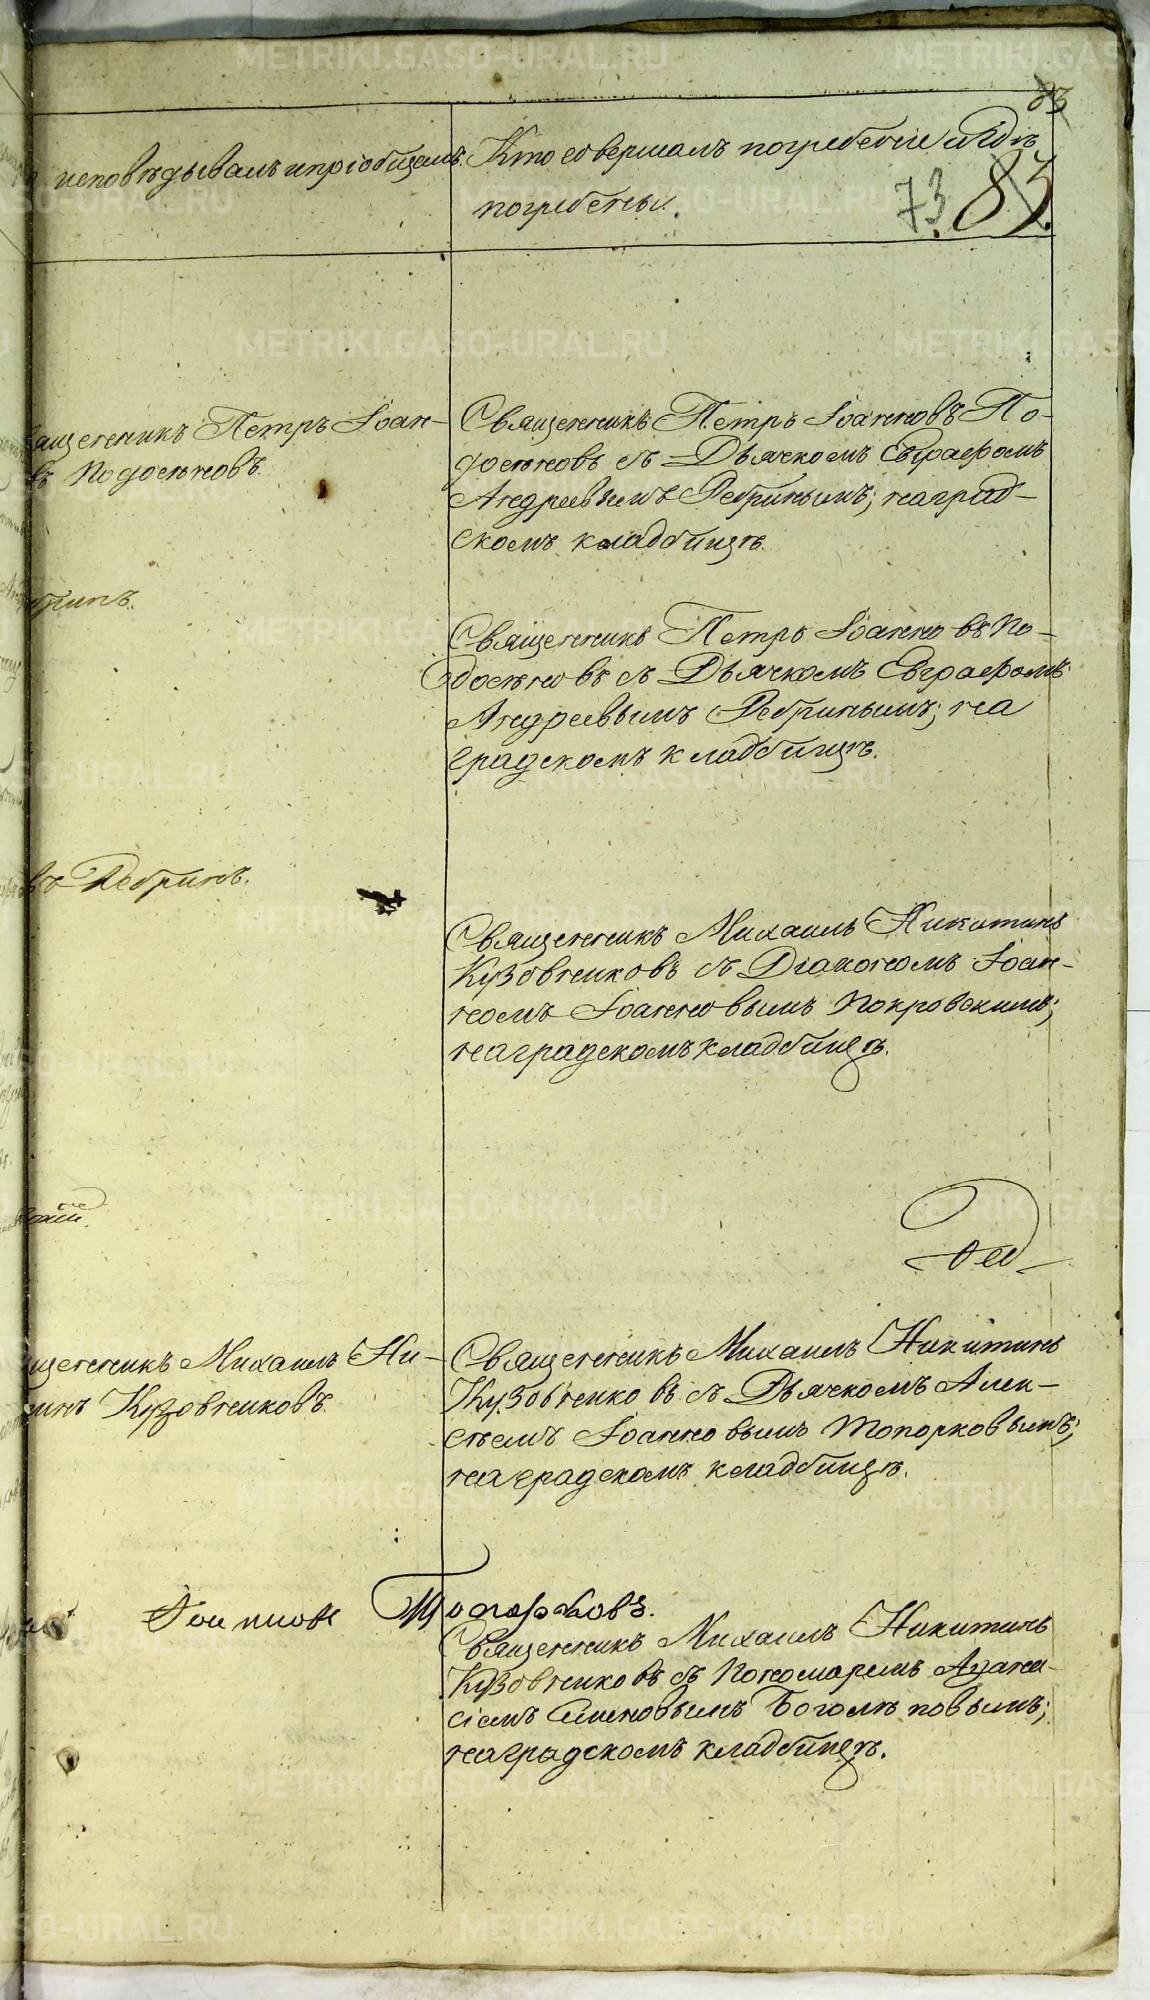 83
исповѣдывалъ и пріобщалъ.
Кто совершалъ погребеніе и гдѣ
погребены.
73. 83.
ащенникъ Петръ Іоан-
въ Подосеновъ.
Священникъ Петръ Іоанновъ По-
досеновъ съ Дьячкомъ Евграфомъ
Андреевымъ Ребринымъ; на град-
скомъ кладбищѣ.
бринъ.
Священникъ Петръ Іоанновъ По-
досеновъ съ Дьячкомъ Евграфомъ
Андреевымъ Ребринымъ; на
градскомъ кладбищѣ.
въ Ребринъ.
Священникъ Михаилъ Никитинъ
Кузовниковъ съ Діакономъ Іоан-
номъ Іоанновымъ Покровскимъ;
на градскомъ кладбищѣ.
щенникъ Михаилъ Ни-
тинъ Кузовниковъ.
Священникъ Михаилъ Никитинъ
Кузовниковъ съ Дьячкомъ Алек-
сѣемъ Іоанновымъ Топорковымъ;
на градскомъ кладбищѣ.
Топорковъ.
Священникъ Михаилъ Никитинъ
Кузовниковъ съ Пономаремъ Афана-
сіемъ Симеоновымъ Боголѣповымъ;
на градскомъ кладбищѣ.
METRIKI.GASO-URAL.RU